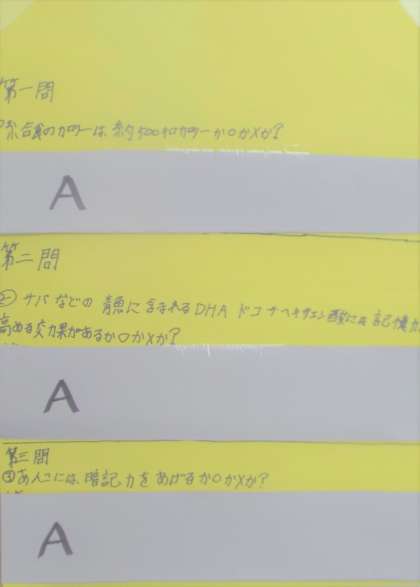 第一問
給食のカロリーは、約500キロカロリーか〇か×か?
A
第二問
② サバなどの青魚に含まれるDHAドコサヘキサエン酸には記憶力
高める効果があるか〇か×か?
A
第三問
③あんこには、暗記力をあげるか〇か×か?
A